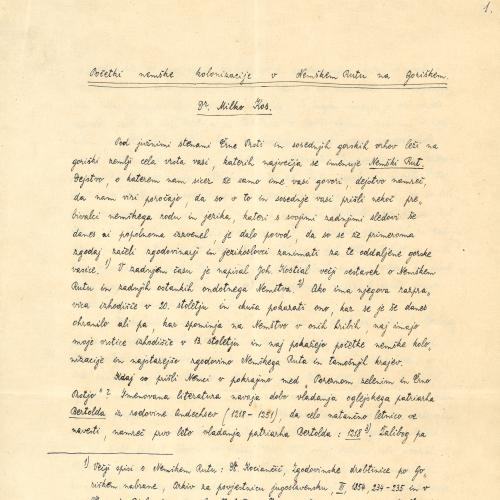 1.
Početki nemške kolonizacije v Nemškem Rutu na Goriškem.
Dr. Milko Kos.
Pod južnimi stenami Črne Prsti in sosednjih gorskih vrhov leži na
goriški zemlji cela vrsta vasi, katerih največja se imenuje Nemški Rut.
Dejstvo, o katerem nam sicer že samo ime vasi govori, dejstvo namreč,
da nam viri poročajo, da so v to in sosednje vasi prišli nekoč pre-
bivalci nemškega rodu in jezika, kateri s svojimi zadnjimi sledovi še
danes ni popolnoma izzvenel, je dalo povod, da so se že primeroma
zgodaj začeli zgodovinarji in jezikoslovci zanimati za te oddaljene gorske
vasice. 1) V zadnjem času je napisal Joh. Kostial večji sestavek o Nemškem
Rutu in zadnjih ostankih ondotnega Nemštva. 2) Ako ima njegova razpra-
va izhodišče v 20. stoletju in skuša pokazati ono, kar se je še danes
ohranilo ali pa, kar spominja na Nemštvo v onih hribih, naj imajo
moje vrstice izhodišče v 13. stoletju in naj pokažejo početke nemške kolo
nizacije in najstarejšo zgodovino Nemškega Ruta in tamošnjih krajev.
Kdaj so prišli Nemci v pokrajino med "Poreznom zelenim in Črno
Prstjo"? Imenovana literatura navaja dobo vladanja oglejskega patriarha
Bertolda iz rodovine Andechsev (1218-1251), da celo natančno letnico ve
navesti, namreč prvo leto vladanja patriarha Bertolda: 1218 3). Žalibog pa
1) Večji spisi o Nemškem Rutu: Št. Kociančič, Zgodovinske drobtinice po Go-
riškem nabrane, Arkiv za povjestnicu jugoslavensku, III. 1854, 234-235 in v